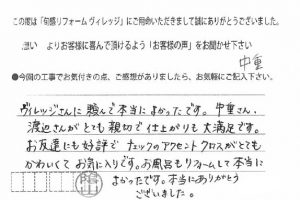 この度は「旬感リフォーム ヴィレッジ」にご用命いただきまして誠にありがとうございました。
想い よりお客様に喜んで頂けるよう「お客様の声」をお聞かせ下さい
中重
●今回の工事でお気付きの点、ご感想がありましたら、お気軽にご記入下さい。
ヴィレッジさんに頼んで本当によかったです。中重さん、
渡辺さんがとても親切で仕上がりも大満足です。
お友達にも好評で チェックのアクセントクロスがとても
かわいくて お気に入りです。お風呂もリフォームして本当に
よかったです。本当にありがとう
ございました。